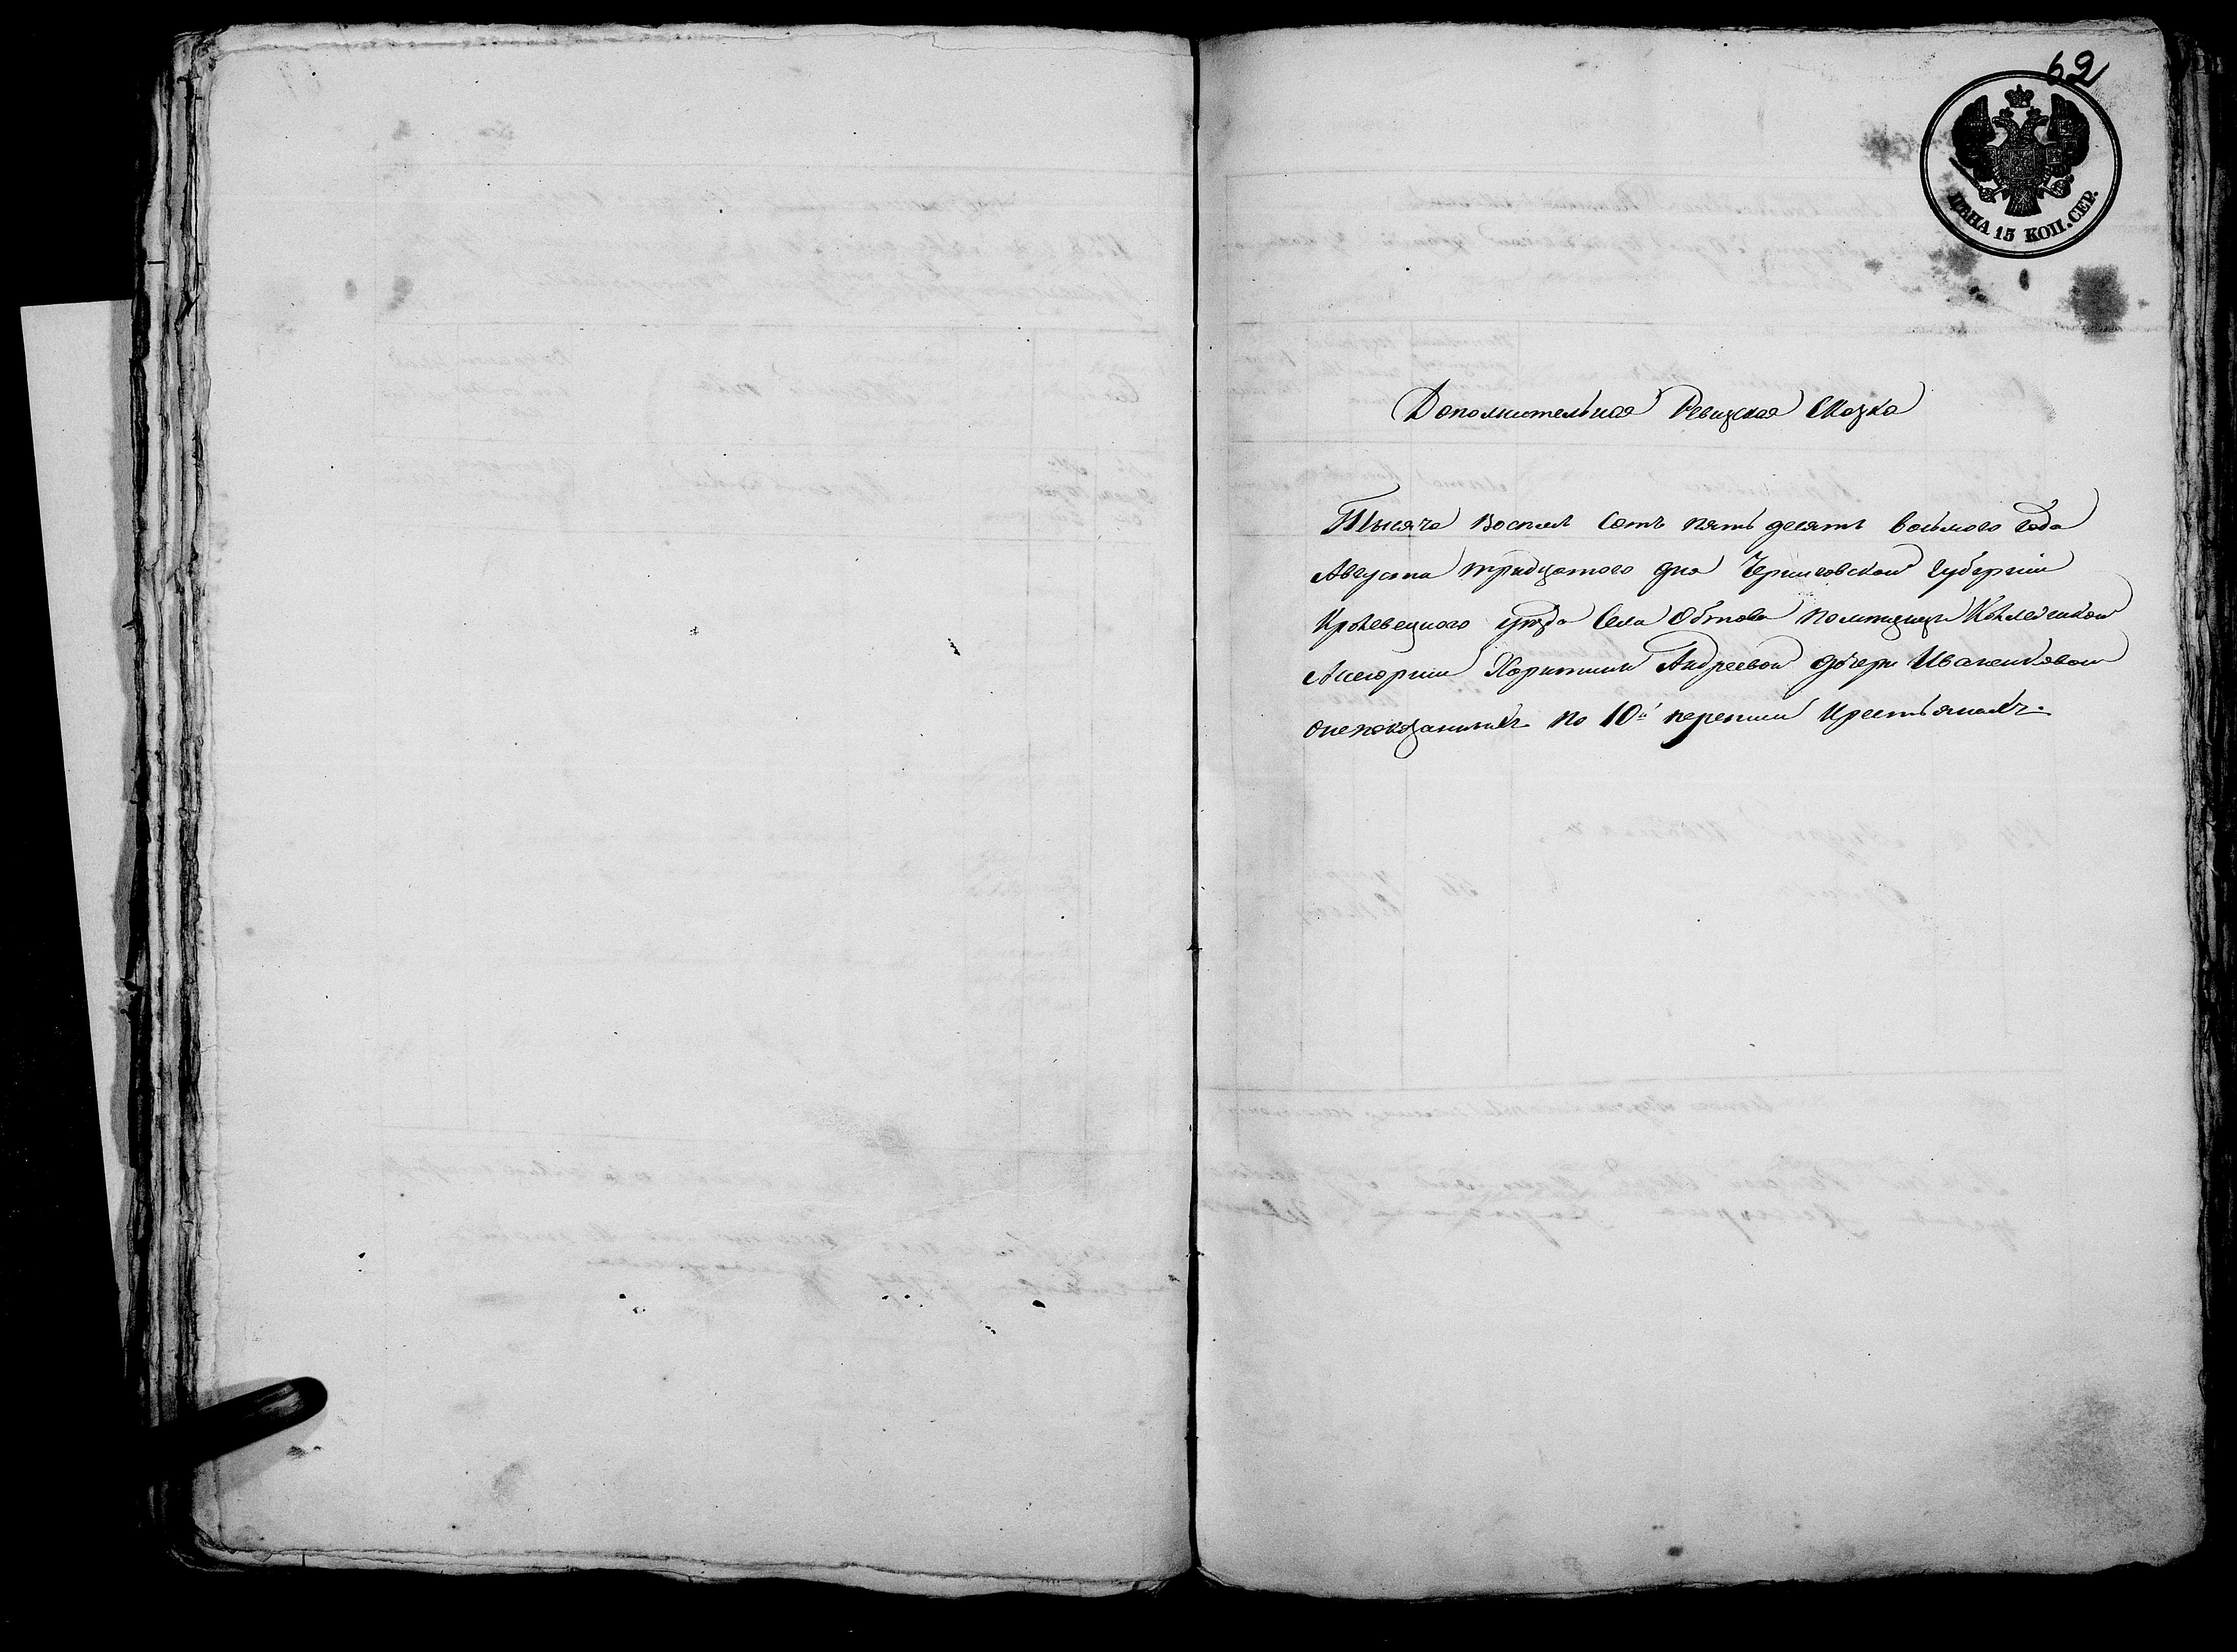 62
ЦѢНА 15 КОП. СЕР.
Дополнительная Ревизская Сказка
Тысяча восемъ сотъ пятьдесятъ восьмого года
Августа тридцатого дня Черниговской Губерніи
Кролевецкого уѣзда Села Обтова помѣщицы Колежской
Асесорши Харитини Андреевой дочери Иваненковой
онепоказанныхъ по 10й переписи Крестьянахъ.